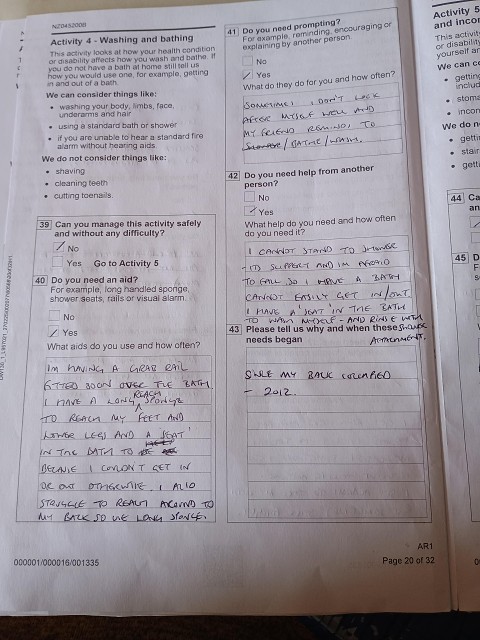 NZ0452000
Activity 4 - Washing and bathing
This activity looks at how your health condition
or disability affects how you wash and bathe. If
you do not have a bath at home still tell us
how you would use one, for example, getting
in and out of a bath.
We can consider things like:
• washing your body, limbs, face,
underarms and hair
• using a standard bath or shower
• if you are unable to hear a standard fire
alarm without hearing aids.
We do not consider things like:
• shaving
• cleaning teeth
• cutting toenails.
39 Can you manage this activity safely
and without any difficulty?
No
Yes Go to Activity 5
40 Do you need an aid?
For example, long handled sponge,
shower seats, rails or visual alarm.
No
Yes
What aids do you use and how often?
IM HAVING A GRAB RAIL
FITTED SOON OVER THE BATH.
I HAVE A LONG REACH SPONGE
TO REACH MY FEET AND
LOWER LEGS AND A 'SEAT'
IN THE BATH TO
BECAUSE I COULDN'T GET IN
OR OUT OTHERWISE. I ALSO
STRUGGLE TO REACH AROUND TO
MY BACK SO USE LONG SPONGE.
41 Do you need prompting?
For example, reminding, encouraging or
explaining by another person.
No
Yes
What do they do for you and how often?
SOMETIMES I DON'T LOOK
AFTER MYSELF WELL AND
MY FRIEND REMINDS TO
SHOWER/BATHE/WASH.
42 Do you need help from another
person?
No
Yes
What help do you need and how often
do you need it?
I CANNOT STAND TO SHOWER
- ITS SLIPPERY AND IM AFRAID
TO FALL SO I HAVE A BATH
CANNOT EASILY GET IN/OUT
I HAVE A 'SEAT' IN THE BATH
TO WASH MYSELF - AND RINSE WITH
SHOWER
ATTACHMENT.
43 Please tell us why and when these
needs began
SINCE MY BACK COLLAPSED
- 2012.
AR1
000001/000016/001335
Page 20 of 32
Activity 5
and incor
This activit
or disability
yourself ar
We can co
• getting
includ
• stoma
• incon
We do n
• getti
• stair
• getti
44 Ca
an
45 D
F